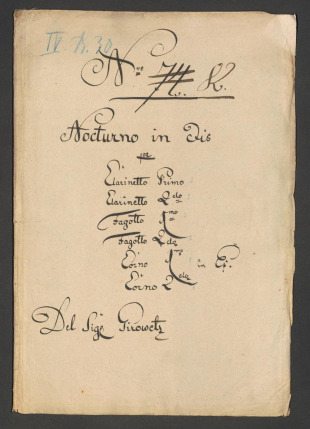 IV A.30
Nro K.
Nocturno in Dis
per
Clarinetto Primo
Clarinetto 2do
Fagotto 1mo
Fagotto 2do
Corno 1mo in E:
Corno 2do
Del Sigr Girowetz